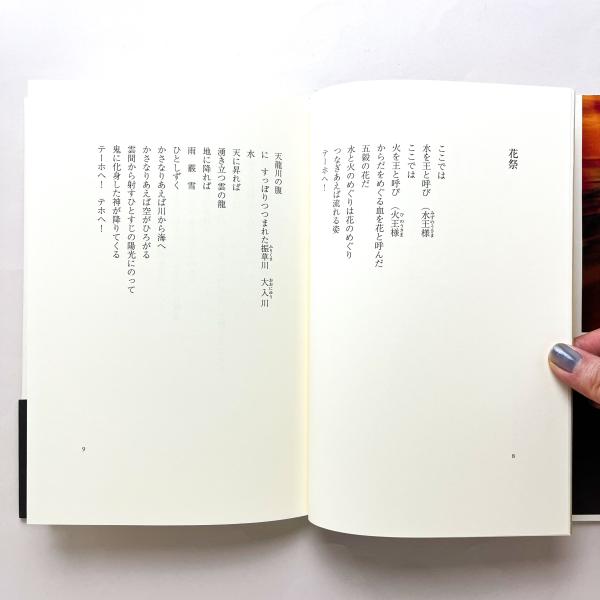 花祭
ここでは
水を王と呼び (水王様)
みずのうさま
ここでは
火を王と呼び (火王様)
ひのうさま
からだをめぐる血を花と呼んだ
五穀の花だ
水と火のめぐりは花のめぐり
つなぎあえば流れる姿
テーホへ!
8
天龍川の腹
に すっぽりつつまれた振草川 大入川
ふりくさ
おおにゅう
水
天に昇れば
湧き立つ雲の龍
地に降れば
雨 霰 雪
ひとしずく
かさなりあえば川から海へ
かさなりあえば空がひろがる
雲間から射すひとすじの陽光にのって
鬼に化身した神が降りてくる
テーホへ! テホへ!
9